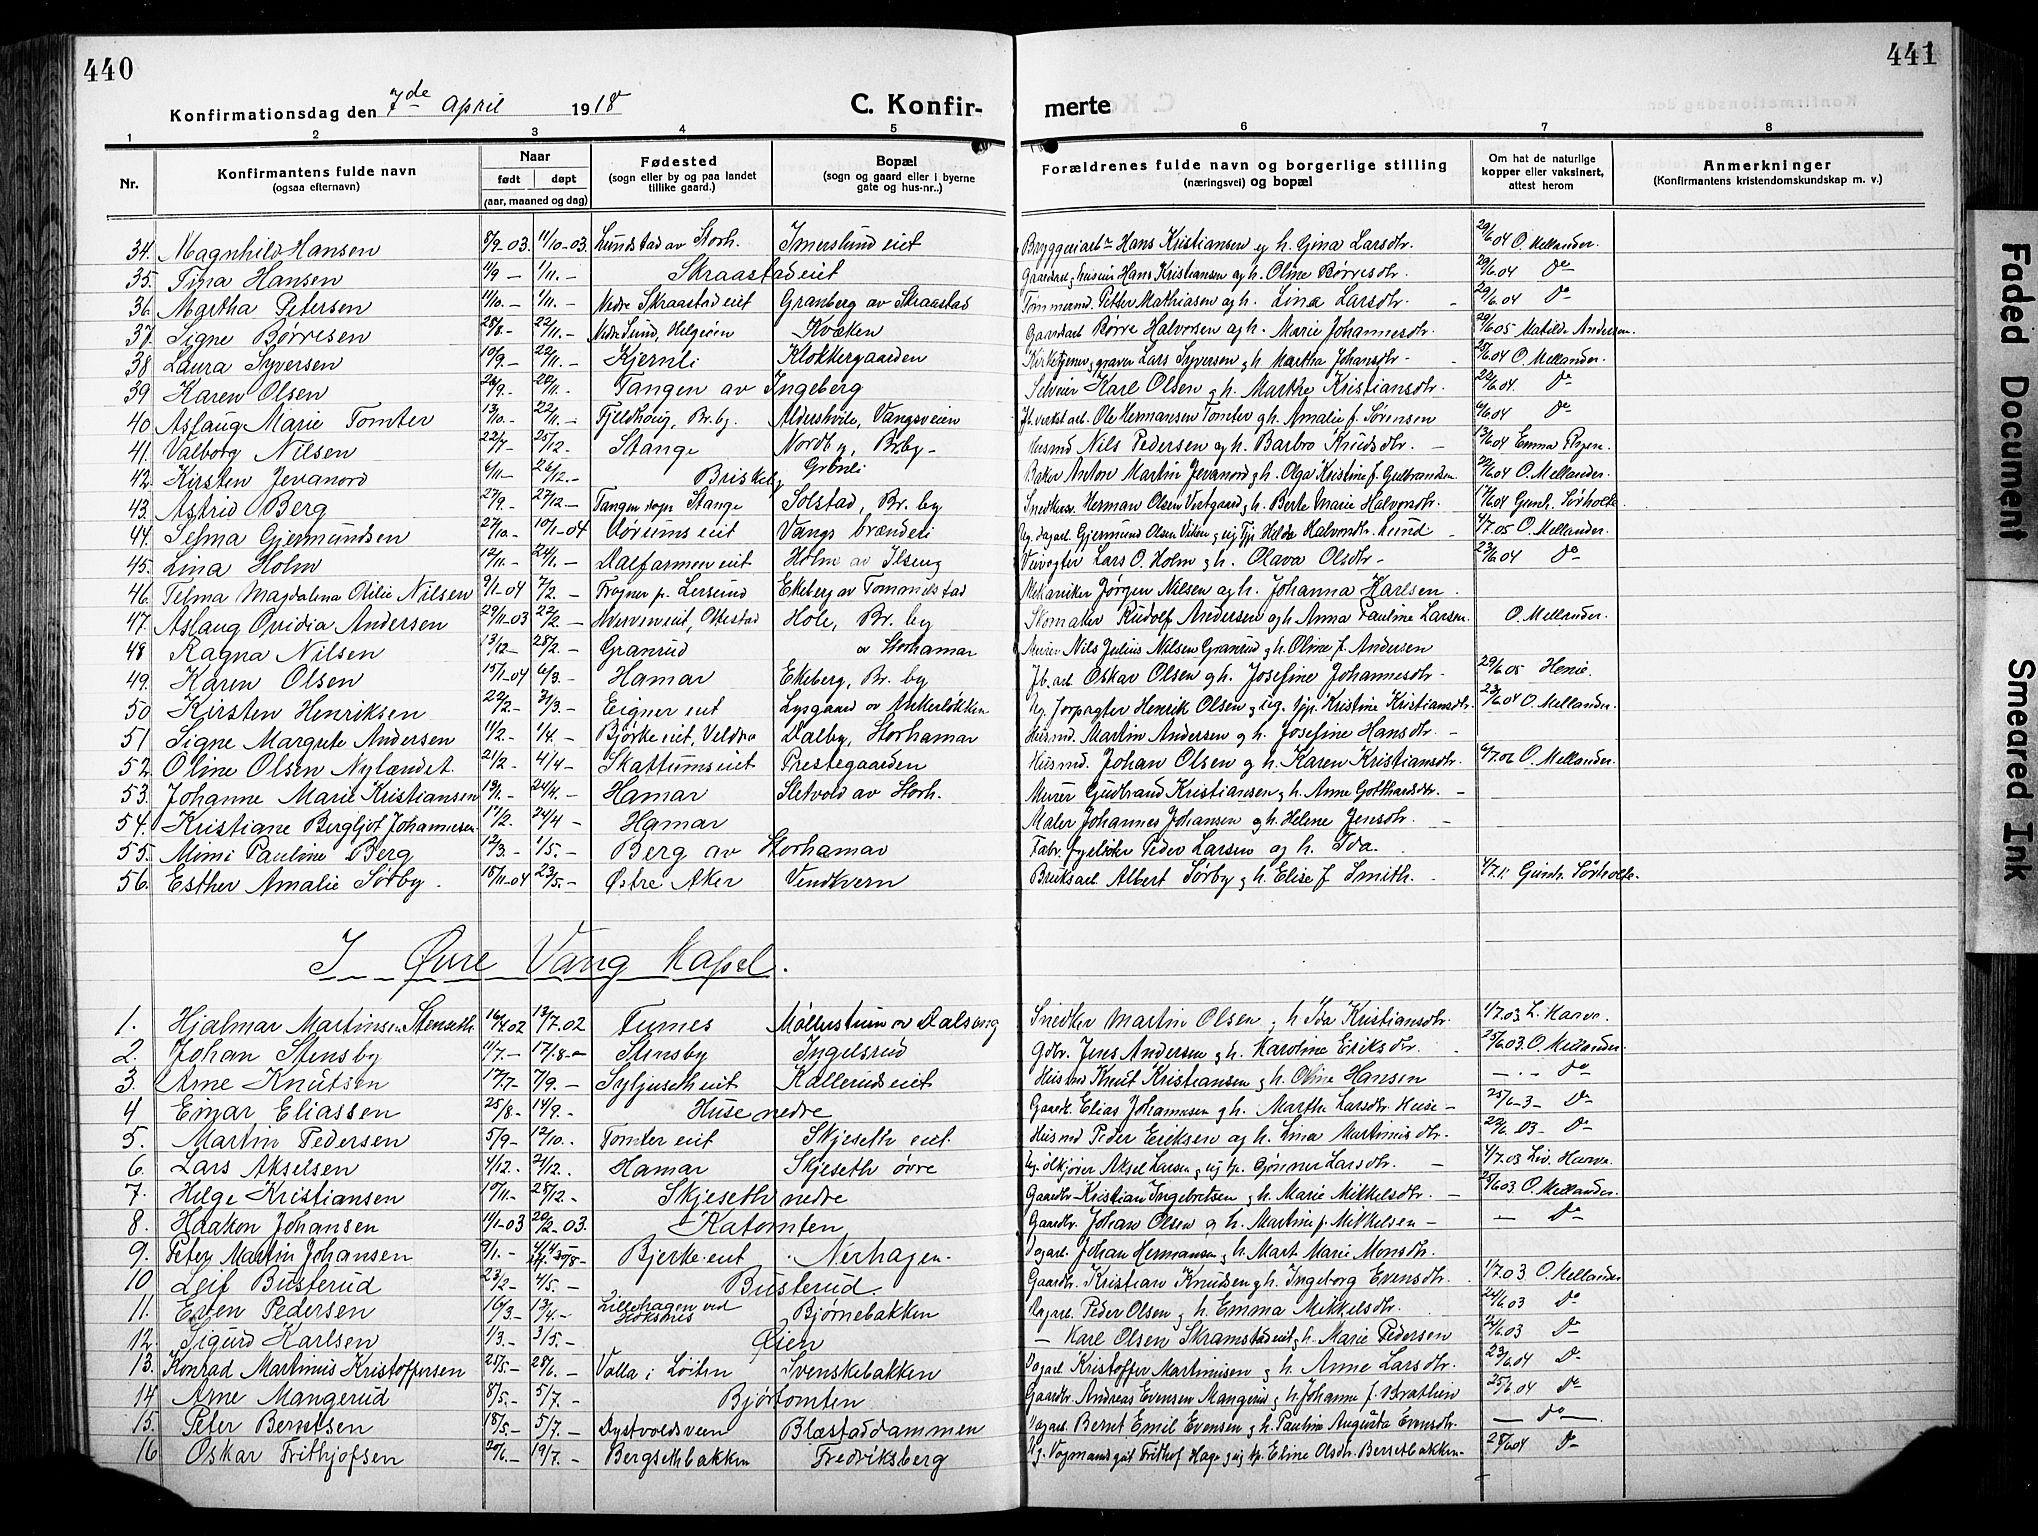 440
441
Konfirmationsdag den 7de April 1918
C. Konfir-
merte
1 2 3 4 5 6 7 8
Nr.
Konfirmantens fulde navn
(ogsaa efternavn)
Naar
født døpt
(aar, maaned og dag)
Fødested
(sogn eller by og paa landet
tillike gaard.)
Bopæl
(sogn og gaard eller i byerne
gate og hus-nr..)
Forældrenes fulde navn og borgerlige stilling
(næringsvei) og bopæl
Om hat de naturlige
kopper eller vaksinert,
attest herom
Anmerkninger
(Konfirmantens kristendomskundskap m. v.)
34. Magnhild Hansen 8/9-03. 11/10-03. Lundstad av Storh. Imerslund eiet Hans Kristiansen og h. Gina Larsdtr. 29/6.04 O. Mellander.
35. Tina Hansen 11/9 - 1/11. - Skraastad eiet Hans Kristiansen og h. Oline Børresdtr. 29/6.04 Do
36. Martha Petersen 11/10. - 1/11. - Nedre Skraastad eiet Granberg av Skraastad Tømmermd. Petter Mathiasen og h. Lina Larsdtr. 29/6.04 Do
37. Signe Børresen 28/8.- 22/11.- Nedre Lund, Helgøien Gaardarb. Børre Halvorsen og h. Marie Johannesdtr. 29/6.05 Matilde Andersen.
38 Laura Syversen 10/9.- 22/11.- Kjernli Klokkergaarden Kirketjener, graver Lars Syversen og h. Martha Johansdtr. 28/6.04 O. Mellander.
39 Karen Olsen 26/9.- 20/11.- Tangen av Ingeberg Selveier Karl Olsen og h. Marthe Kristiansdtr. 22/6.04. Do
40 Aslaug Marie Tomter 13/10.- 22/11.- Fjeldhøig, Br.by. Aldershvile, Vangsveien Jb. verkst.arb. Ole Hermansen Tomter og h. Amalie f. Sørensen 6/6.04 Do
41. Valborg Nilsen 22/7- 25/12. Stange Nordby, Br.by- Husmd Nils Pedersen og h. Barbro Knudsdtr. - 13/6.04 Emma
42. Kirsten Jevanord 6/11- 26/12.- Briskeby Grønli Baker Anton Martin Jevanord og h. Olga Kristine f. Gulbrandsen. 22/6.04 O. Mellander.
43. Astrid Berg 27/9.- 27/12- Tangen sogn Stange Solstad, Br. by Snedkersv. Herman Olsen Vestgaard og h. Berte Marie Halvorsdtr. 17/6.04 Gunh. Sørholte
44. Selma Gjermundsen 27/10.- 10/1-04 Aørums eiet Vangs brænderi Ug. dagarb. Gjermund Olsen Viken og ug. Tje. Helda Halvorsdtr. Lund - 4/7.05 O. Mellander.
45. Lina Holm 12/11.- 24/1.- Dalfarmen eiet Holm av Ilseng Veivogter Lars O. Holm og h. Olava Olsdtr - 23/6.04 Do
46. Telma Magdalena Otilie Nilsen 9/1-04 7/2.- Frogner p. Lersund Ekeberg av Tommelstad Mekaniker Jørgen Nilsen og h. Johanna Karlsen.
47. Aslaug Ovidia Andersen 29/11-03 22/2- eiet, Ottestad Hole, Br. by Skomaker Rudolf Andersen og h. Anna Pauline Larsen. O. Mellander.
48 Ragna Nilsen 13/12- 28/2.- Granrud av Storhamar Nils Julius Nilsen Granrud og h. Oline f. Andersen
49. Karen Olsen 15/1-04 6/3.- Hamar Ekeberg, Br. by Jb. arb. Oskar Olsen og h. Josefine Johannesdtr. 29/6.05 Henie.
50 Kirsten Henriksen 22/2- 31/3.- Eigner eiet Lysgaard av Ankerløkken Ug. Forpagter Henrik Olsen og ug. tje. Kristine Kristiansdtr. 23/6.04 O. Mellander.
51 Signe Margrete Andersen 11/2- 1/4.- Bjørke eiet, Veldre Dalby, Storhamar Husmd. Martin Andersen og h. Josefine Hansdtr -
52 Oline Olsen Nylændet. 21/2- 4/4- Skattums eiet Prestegaarden Husmd. Johan Olsen og h. Karen Kristiansdtr. 6/7.06 O. Mellander.
53. Johanne Marie Kristiansen 19/1.- 24/4.- Hamar Sletvold av Storh. Murer Gudbrand Kristiansen og h. Anne Gotthardsdtr. -
54. Kristiane Bergljot Johannesen. 17/2. 24/4- Hamar Maler Johannes Johansen og h. Helene Jensdtr. -
55. Mimi Pauline Berg 12/3.- 1/5.- Berg av Storhamar Peder Larsen og h. Ida.
56. Esther Amalie Sørby. 18/11-04 23/5.- Østre Aker Vendkvern Bruksarb. Albert Sørby og h. Elise f. Smith. - 4/7.11 Gunh. Sørholte.
I Øvre Vang Kapel.
1. Hjalmar Martinsen Stenseth 16/4 02 13/7.02 Furnes Møllerstuen av Dalseng Snedker Martin Olsen og h Ida Kristiansdtr. 1/7.03 L. Harve.
2. Johan Stensby 11/7.- 17/8-- Stensby Ingelsrud Gdbr. Jens Andersen og h. Karoline Eriksdtr. - 25/6.03. O. Mellander.
3. Arne Knutsen 17/7- 7/9.- eiet Kallerud eiet Husmd Knut Kristiansen og h. Oline Hansen - . - Do
4 Einar Eliassen 25/8- 14/9.- Huse nedre Gaardb. Elias Johannesen og h. Marthe Larsdtr. Huse - 25/6-3- Do
5. Martin Pedersen 5/9- 12/10. Tomter eiet Skjeseth eiet. Husmd Peder Eriksen og h. Lina Martinusdtr. 29/6.03- Do
6. Lars Akselsen 4/12. 21/12. Hamar Skjeseth övre Ug. ølkjører Aksel Larsen og ug. tp. Gønner Larsdtr. - 4/7.03 Liv. Harve.
7. Helge Kristiansen 10/11.- 28/12- Skjeseth nedre Gaardbr. Kristian Ingebretsen og h. Marie Mikkelsdtr. - 25/6.03. O. Mellander.
8. Haakon Johansen 11/1-03 20/2-03. Katomten Gaardbr. Johan Olsen og h. Martine f. Mikkelsen - - Do
9. Peter Martin Johansen 9/1.- Bjerke eiet Nerhagen. Dagarb. Johan Hermansen og h. Mart. Marie Monsdtr.
10 Leif Busterud 23/2- 4/5.- Busterud. Gaardbr. Kristian Knudsen og h. Ingeborg Evensdtr. 1/7.03 O. Mellander
11. Even Pedersen 16/3.- 13/4.- Lillehagen ved Hoksnes Bjørnebakken Dagarb. Peder Olsen og h. Emma Mikkelsdtr. 24/6.03 Do
12. Sigurd Karlsen 1/3.- 3/5.- Øien - Karl Olsen Skramstad eiet og h. Marie Pedersen 24/6.03 Do
13. Konrad Martinus Kristoffersen 25/5.- 28/6.- Valla i Løiten Svenskebakken Dagarb. Kristoffer Martinusen og h. Anne Larsdtr. 23/6.04 Do
14 Arne Mangerud 8/5.- 5/7.- Bjørtomten Gaardbr. Andreas Evensen Mangerud og h. Johanne f. Bræthen 25/6.04 Do
15. Peter Berntsen 18/5.- 5/7.- Dystvoldsveen Blæstaddammen Dagarb. Bernt Emil Evensen og h. Pauline Augusta Evensdtr. - Do -
16 Oskar Frithjofsen 20/6.- 19/7.- Bergsethbakken Fredriksberg Ug. Vognmandsgut Frithof Hage og ug. tp. Eline Olsdtr. Bersetbakken- 28/6.04 Do
Faded Document
Smeared Ink